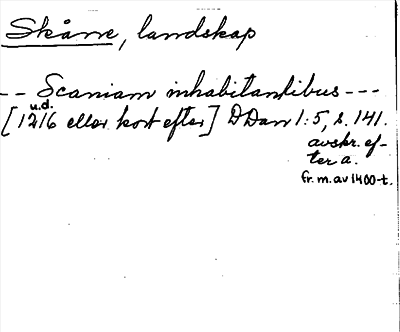 Skåne, landskap
-- Scaniam inhabitantibus ---
u.d.
[1216 eller kort efter] DDan 1:5, s. 141.
avskr. ef-
ter a.
fr. m. av 1400-t.